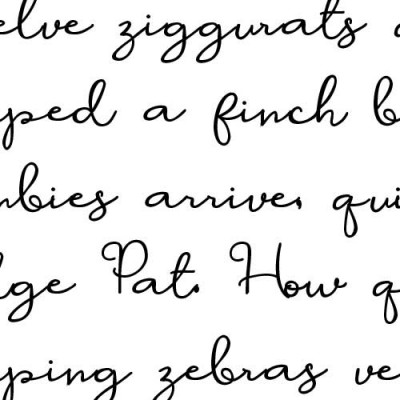 elve ziggurats
ped a finch b
mbies arrive, qui
dge Pat. How q
ping zebras ve